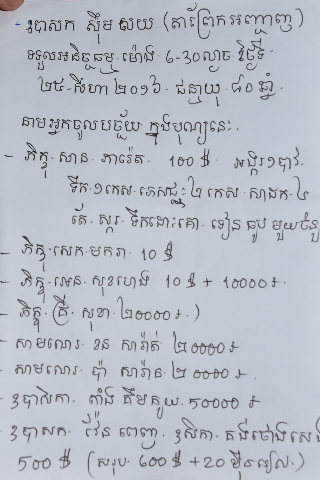 - ឧបាសក ស៊ឹម លយ (តាព្រែកអញ្ចាញ)
ទទួលអនិច្ចធម្ម ម៉ោង 6-30 ល្ងាច ថ្ងៃទី
២៥-សីហា ២០១៦. ជន្មាយុ ៨០ ឆ្នាំ.
នាមអ្នកចូលបច្ច័យ ក្នុងបុណ្យនេះ.
- ភិក្ខុ សាន ភារ៉េត. 100$ អង្ករ១បាវ
ទឹក ១កេស ភេសជ្ជៈ ២ កេស សាដក ៤
តែ. ស្ករ ទឹកដោះគោ ទៀន ធូប មួយចំនួន
- ភិក្ខុ សេក មករា 10$
- ភិក្ខុ អេន សុខហេង 10$ + 10000៛.
- ភិក្ខុ គ្រី សុខា ២០០០០៛)
- សាមណេរ ខន សារ៉ាត់ ២០០០០៛
- សាមណេរ ប៉ា សារ៉ាន ២០០០០៛
- ឧបាសិកា តាំង គឹមគួយ 50000៛
- ឧបាសក វ៉ែន ពេញ. ឧសិកា គង់ថោងសេង
500$ (សរុប 600$ + 20ម៉ឺនរៀល.)